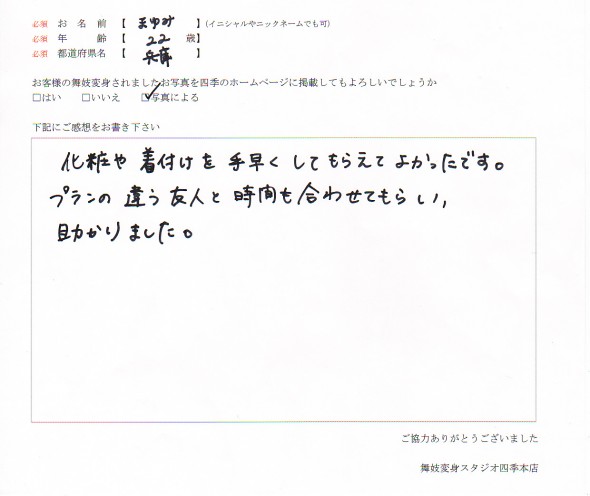 必須 お名前 【 まゆみ 】(イニシャルやニックネームでも可)
必須 年齢 【 22 歳】
必須 都道府県名 【 兵庫 】
お客様の舞妓変身されましたお写真を四季のホームページに掲載してもよろしいでしょうか
□はい □いいえ ☑写真による
下記にご感想をお書き下さい
化粧や着付けを手早くしてもらえてよかったです。
プランの違う友人と時間も合わせてもらい,
助かりました。
ご協力ありがとうございました
舞妓変身スタジオ四季本店